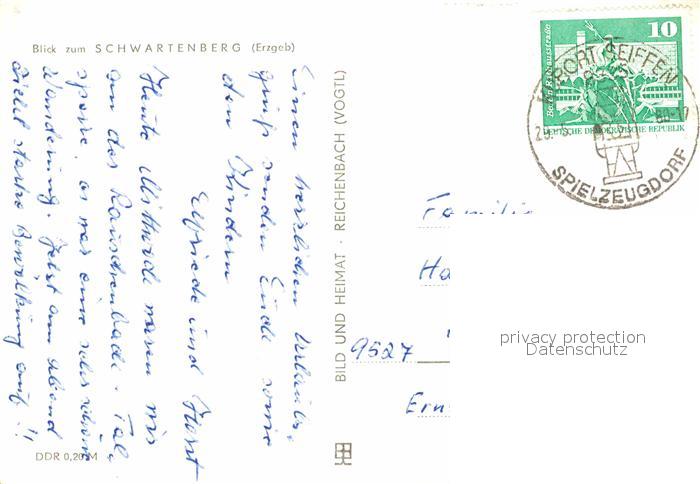 Blick zum SCHWARTENBERG (Erzgeb)
Einen herzlichen Urlaubs-
gruß senden Euch sowie
den Kindern
Elfriede und Horst
Heute Mittwoch waren wir
an der Rauschenbach-Tal-
sperre, es war eine sehr schöne
Wanderung. Jetzt am Abend
zieht starke Bewölkung auf!!
DDR 0,20 M
BILD UND HEIMAT · REICHENBACH (VOGTL)
10
DEUTSCHE DEMOKRATISCHE REPUBLIK
KURORT SEIFFEN
SPIELZEUGDORF
Familie
Ha
9527
Ern
privacy protection
Datenschutz